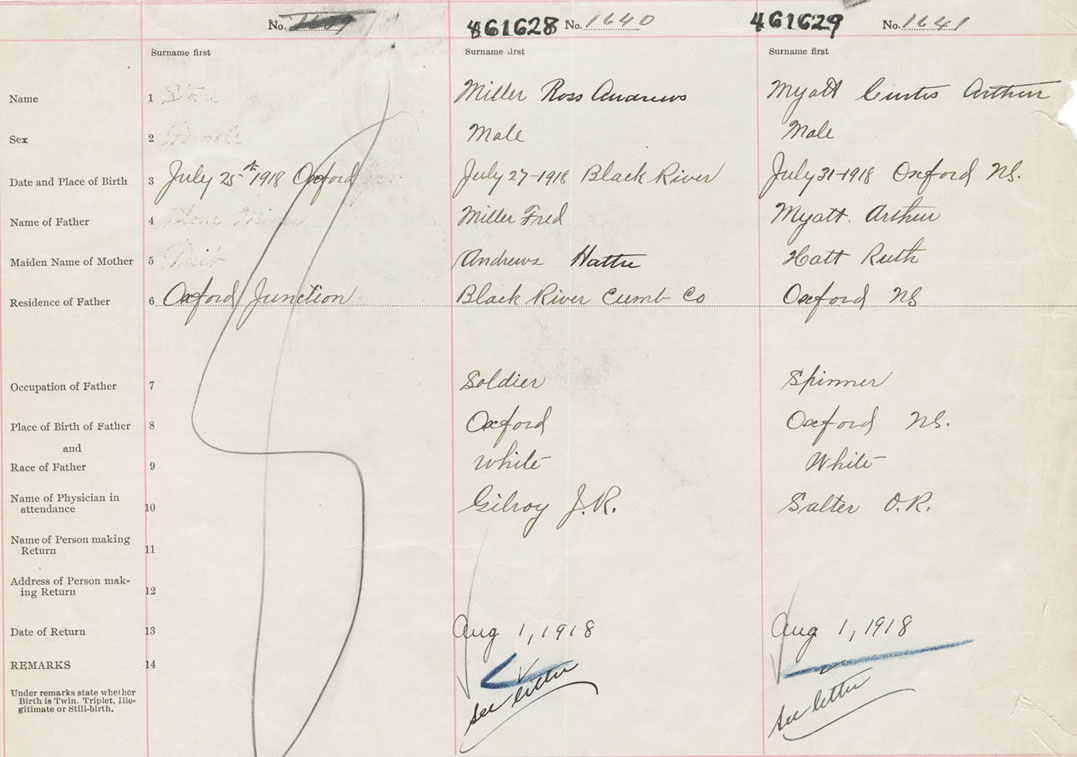 No. 461628 No. 1640 461629 No. 1641
Surname first Surname first Surname first
Name 1 Miller Ross Andrews Myatt Curtis Arthur
Sex 2 Male Male
Date and Place of Birth 3 July 25th 1918 Oxford July 27-1918 Black River July 31-1918 Oxford NS.
Name of Father 4 Miller Fred Myatt. Arthur
Maiden Name of Mother 5 Andrews Hattie Hatt Ruth
Residence of Father 6 Oxford Junction Black River Cumb Co Oxford NS
Occupation of Father 7 Soldier Spinner
Place of Birth of Father 8 Oxford Oxford NS.
and
Race of Father 9 White White
Name of Physician in
attendance 10 Gilroy J.R. Salter O.R.
Name of Person making
Return 11
Address of Person mak-
ing Return 12
Date of Return 13 Aug 1, 1918 Aug 1, 1918
REMARKS 14
Under remarks state whether
Birth is Twin. Triplet, Ille-
gitimate or Still-birth.
see letter see letter